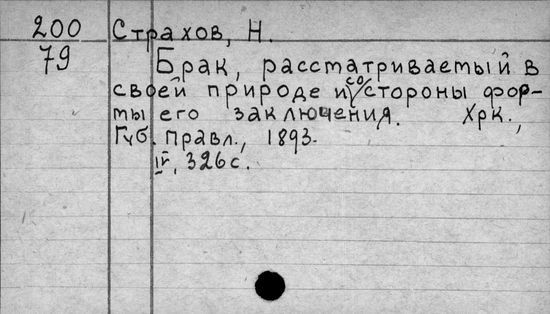 200 Страхов, Н.
79 Брак, рассматриваемый в
своей природе и со стороны фор-
мы его заключения. Хрк.,
Губ. правл., 1893.
IV, 326 с.